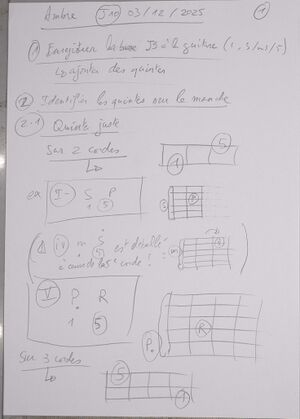 Ambre J10 03/12/2025 1
1 Enregistrer les basse JB à la guitare (1, 3/m3/5)
↳ ajouter des quintes
2 Identifier les quintes sur le manche
2.1 Quinte juste
Sur 2 cordes
1 5
ex I - S P
1 5
3 P
⚠ iv m S est décallé
à cause de la 5e corde !
V P R
1 5
P. R
Sur 3 cordes
5
1